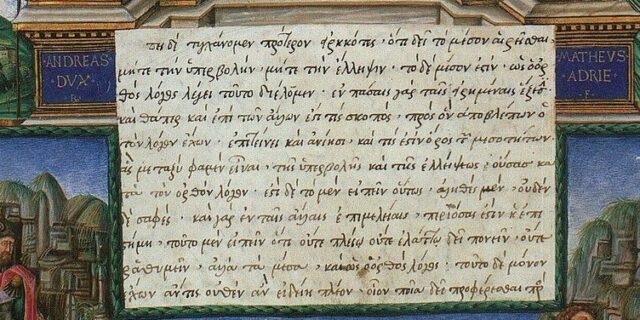 ANDREAS
DVX
MATHEVS
ADRIE
δὲ τυγχάνομεν πρότερον εἰρηκότες · ὅτι δεῖ τὸ μέσον αἱρεῖσθαι
μήτε τὴν ὑπερβολὴν · μήτε τὴν ἔλλειψιν · τὸ δὲ μέσον ἐστὶν · ὡς ὁ ὀρ
θὸς λόγος λέγει τοῦτο διέλομεν · ἐν πάσαις γὰρ ταῖς εἰρημέναις ἕξεσι
καθάπερ καὶ ἐπὶ τῶν ἄλλων ἐστί τις σκοπὸς · πρὸς ὃν ἀποβλέπων ὁ
τὸν λόγον ἔχων · ἐπιτείνει καὶ ἀνίησι · καί τις ἐστὶν ὅρος τῶν μεσοτήτων
ἃς μεταξὺ φαμὲν εἶναι · τῆς ὑπερβολῆς καὶ τῆς ἐλλείψεως · οὔσας κα
τὰ τὸν ὀρθὸν λόγον · ἔστι δὲ τὸ μὲν εἰπεῖν οὕτως · ἀληθὲς μὲν · οὐδὲν
δὲ σαφές · καὶ γὰρ ἐν ταῖς ἄλλαις ἐπιμελείαις · περὶ ὅσας ἐστὶν ἐπι
στήμη · τοῦτο μὲν εἰπεῖν ὅτι οὔτε πλείω οὔτε ἐλάττω δεῖ πονεῖν · οὔτε
ῥαθυμεῖν · ἀλλὰ τὰ μέσα · καὶ ὡς ὁ ὀρθὸς λόγος · τοῦτο δὲ μόνον
ἔχων ἄν τις οὐθὲν ἂν εἰδείη πλέον · οἷον ποῖα δεῖ προσφέρεσθαι πρὸς